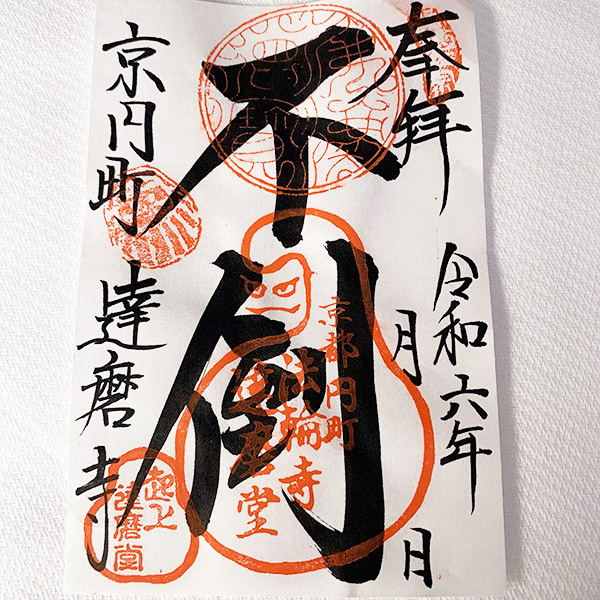 奉拝
令和六年
月 日
不倒
京都円町
法輪寺
達磨堂
京円町 達磨寺
起上
達磨堂